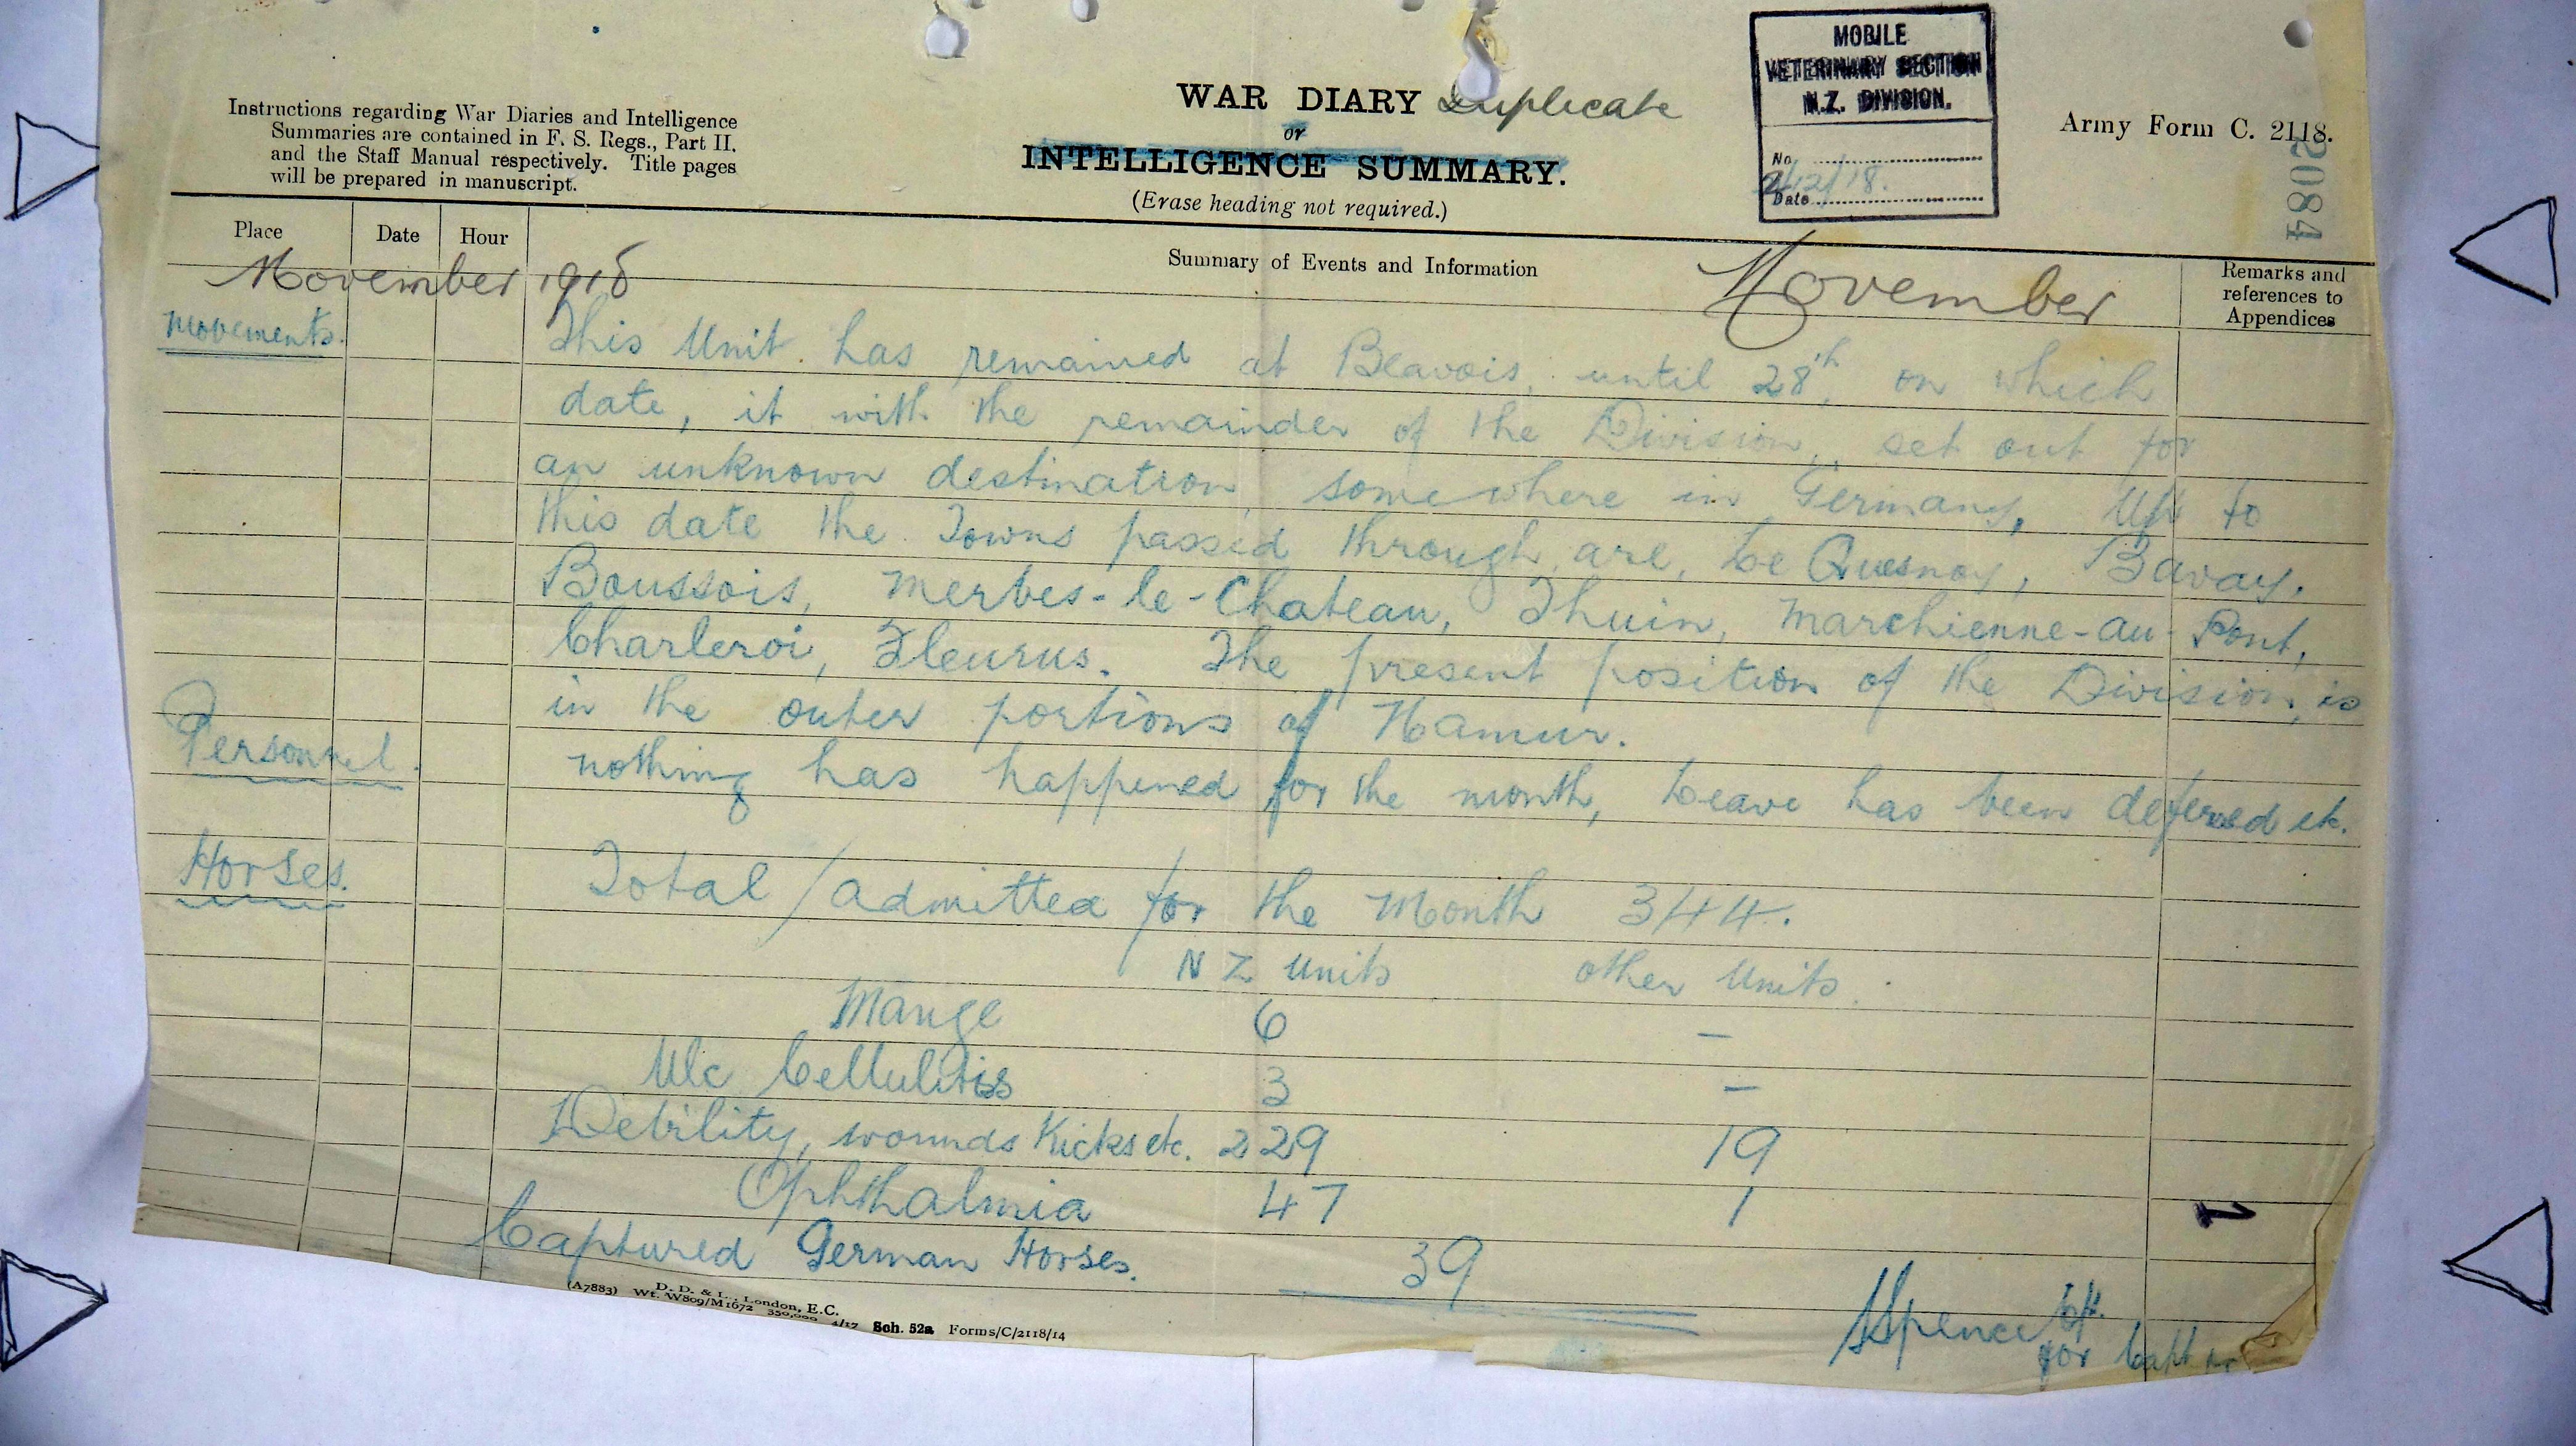 Instructions regarding War Diaries and Intelligence
Summaries are contained in F. S. Regs., Part II.
and the Staff Manual respectively. Title pages
will be prepared in manuscript.
WAR DIARY Duplicate
or
INTELLIGENCE SUMMARY.
(Erase heading not required.)
MOBILE
VETERINARY SECTION
N.Z. DIVISION.
No
Date 2/12/18.
Army Form C. 2118.
2084
Place Date Hour Summary of Events and Information Remarks and
references to
Appendices
November 1918 November
Movements. This Unit has remained at Beavois, until 28th, on which
date, it with the remainder of the Division, set out for
an unknown destination, somewhere in Germany, Up to
this date the Towns passed through are, Le Quesnoy, Bavay.
Boussois, Merbes-le-Chateau, Thuin, Marchienne-au-Pont,
Charleroi, Fleurus. The present position of the Division, is
in the outer portions of Namur.
Personnel. nothing has happened for the month, Leave has been deferred etc.
Horses. Total admitted for the Month 344.
N Z Units other Units.
Mange 6 –
Ulc Cellulitis 3 –
Debility, wounds Kicks etc. 229 19
Ophthalmia 47 1
Captured German Horses. 39
1
Spence Lt.
for Capt
(A7883) D. D. & L., London, E.C.
Wt. W809/M1672 350,000 4/17 Sch. 52a Forms/C/2118/14